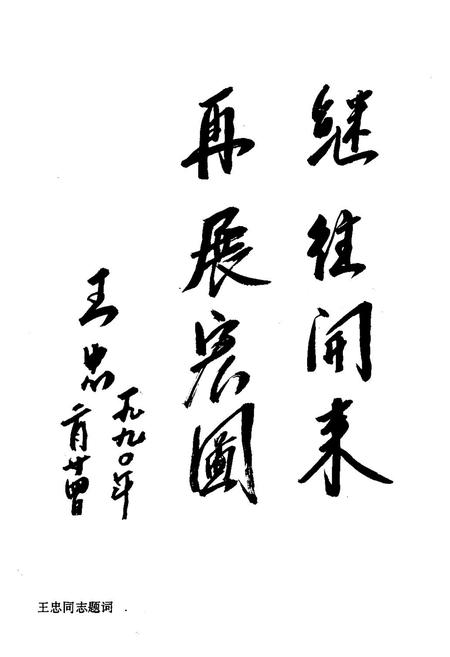 继往开来
再展宏图
王忠
一九九〇年
二月廿四日
王忠同志题词